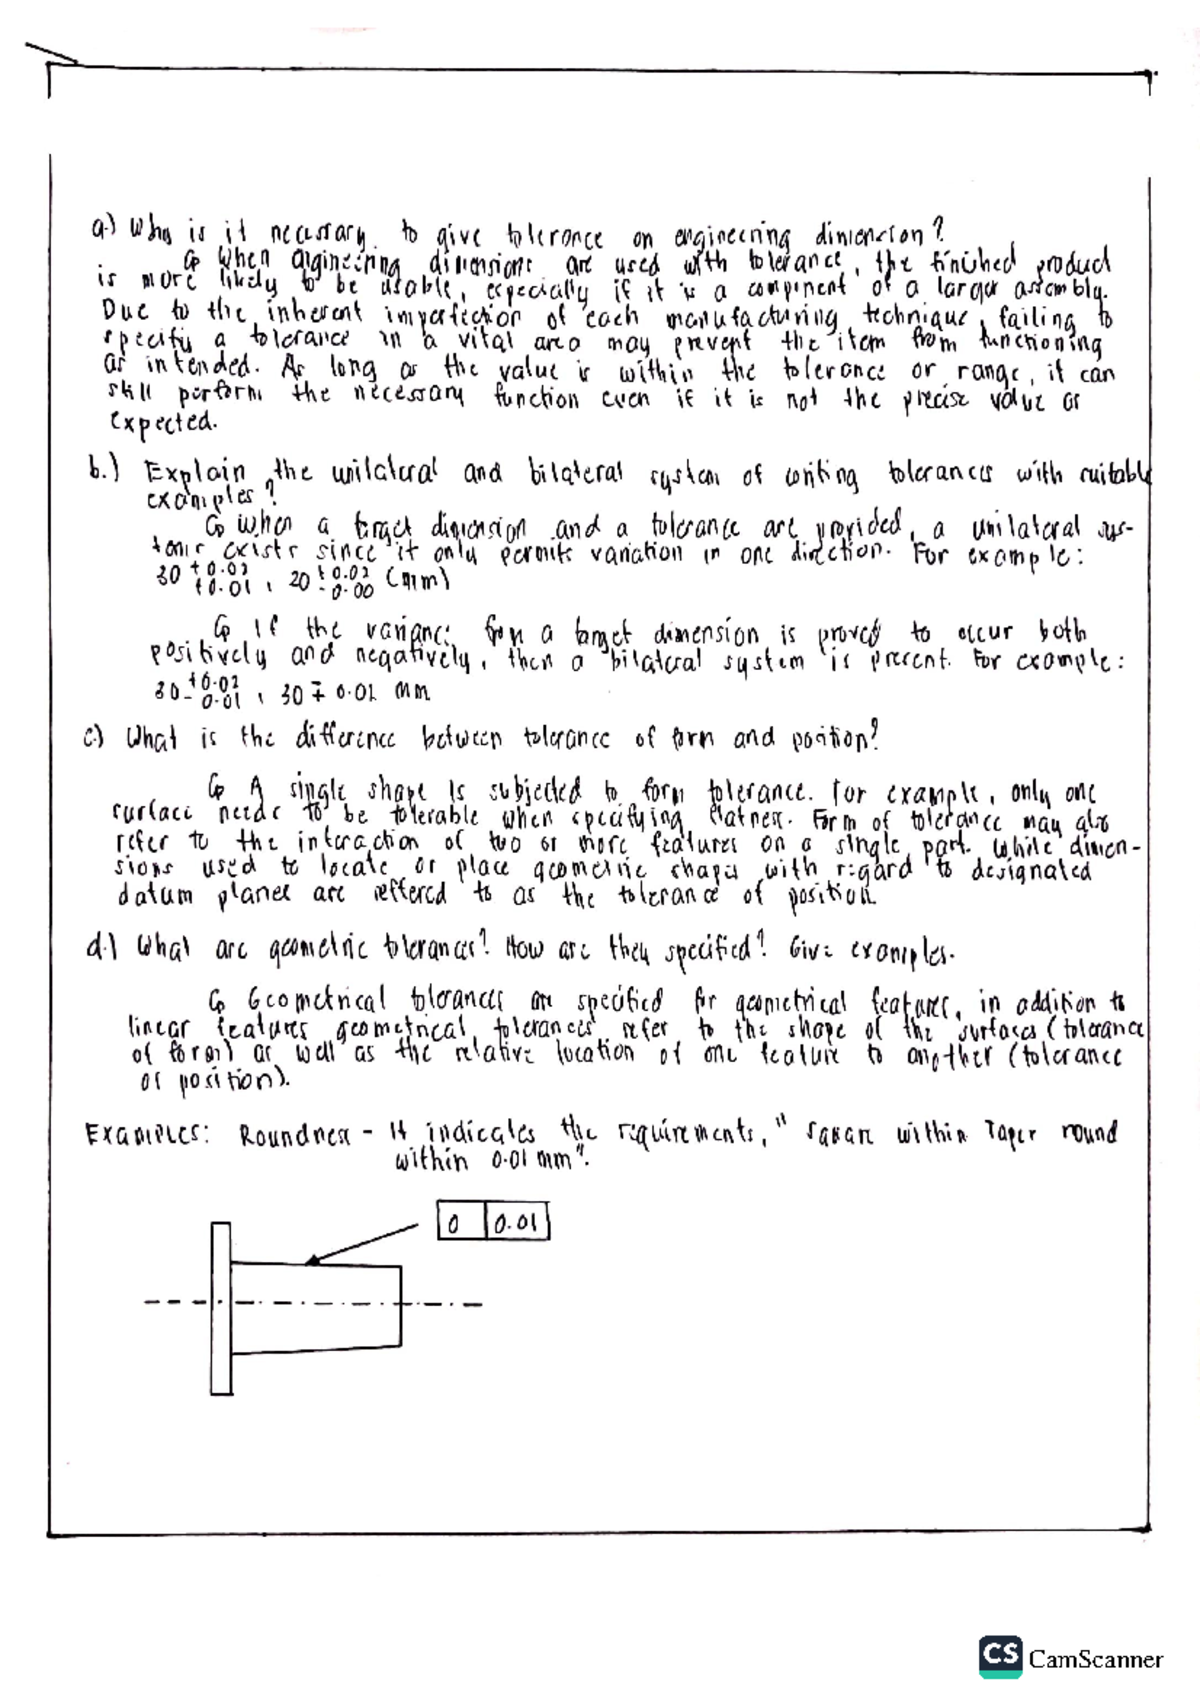 a.) Why is it necessary to give tolerance on engineering dimension?
↳ When engineering dimensions are used with tolerance, the finished product
is more likely to be usable, especially if it is a component of a larger assembly.
Due to the inherent imperfection of each manufacturing technique, failing to
specify a tolerance in a vital area may prevent the item from functioning
as intended. As long as the value is within the tolerance or range, it can
still perform the necessary function even if it is not the precise value as
expected.
b.) Explain the unilateral and bilateral system of writing tolerances with suitable
examples?
↳ When a target dimension and a tolerance are provided, a unilateral sys-
exists since it only permits variation in one direction. For example:
30 +0.02 +0.01 , 20 +0.02 -0.00 (mm)
↳ If the variance from a target dimension is proved to occur both
positively and negatively, then a bilateral system is present. For example:
30 +0.02 -0.01 , 30 ∓ 0.01 mm
c.) What is the difference between tolerance of form and position?
↳ A single shape is subjected to form tolerance. For example, only one
surface needs to be tolerable when specifying flatness. Form of tolerance may also
refer to the interaction of two or more features on a single part. While dimen-
sions used to locate or place geometric shapes with regard to designated
datum planes are reffered to as the tolerance of position.
d.) What are geometric tolerances? How are they specified? Give examples.
↳ Geometrical tolerances are specified for geometrical features, in addition to
linear features geometrical tolerances refer to the shape of the surfaces (tolerance
of form) as well as the relative location of one feature to another (tolerance
of position).
EXAMPLES: Roundness - It indicates the requirements, " within Taper round
within 0.01 mm".
0 0.01
CS CamScanner